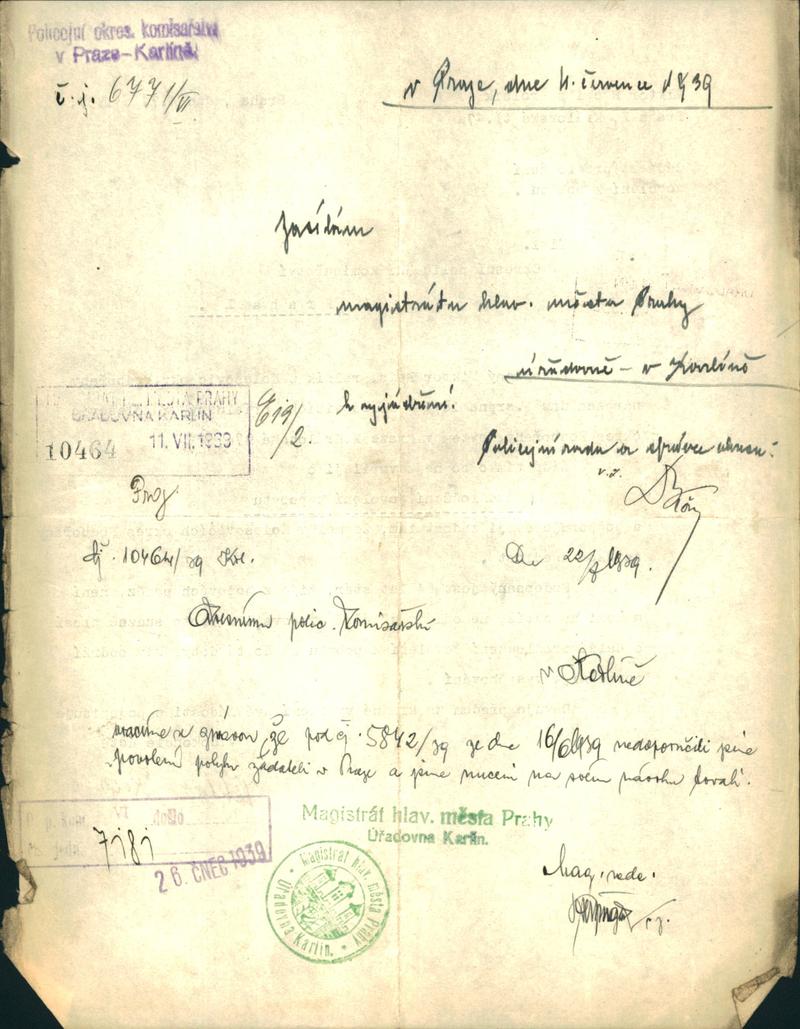 Policejní okres. komisařství
v Praze-Karlíně
č.j. 6771/VI
v Praze, dne 11. července 1939
Zasílám
magistrátu hlav. města Prahy
úřadovně - v Karlíně
k vyjádření.
HL. MĚSTA PRAHY
ÚŘADOVNA KARLÍN
10464 11. VII. 1939
Policejní rada a správce okresu:
v.z.
čj. 10464/39
Dne 22/7 1939.
Okresnímu polic. komisařství
v Karlíně
vracíme se zprávou, že pod čj. 5842/39 ze dne 16/6 1939 nedoporučili jsme
povolení pobytu žadateli v Praze a jsme nuceni na svém návrhu trvati.
došlo
7181
26. ČNEC 1939
Magistrát hlav. města Prahy
Úřadovna Karlín.
Magistrát hlav. města Prahy
Úřadovna Karlín.
Mag. rada: